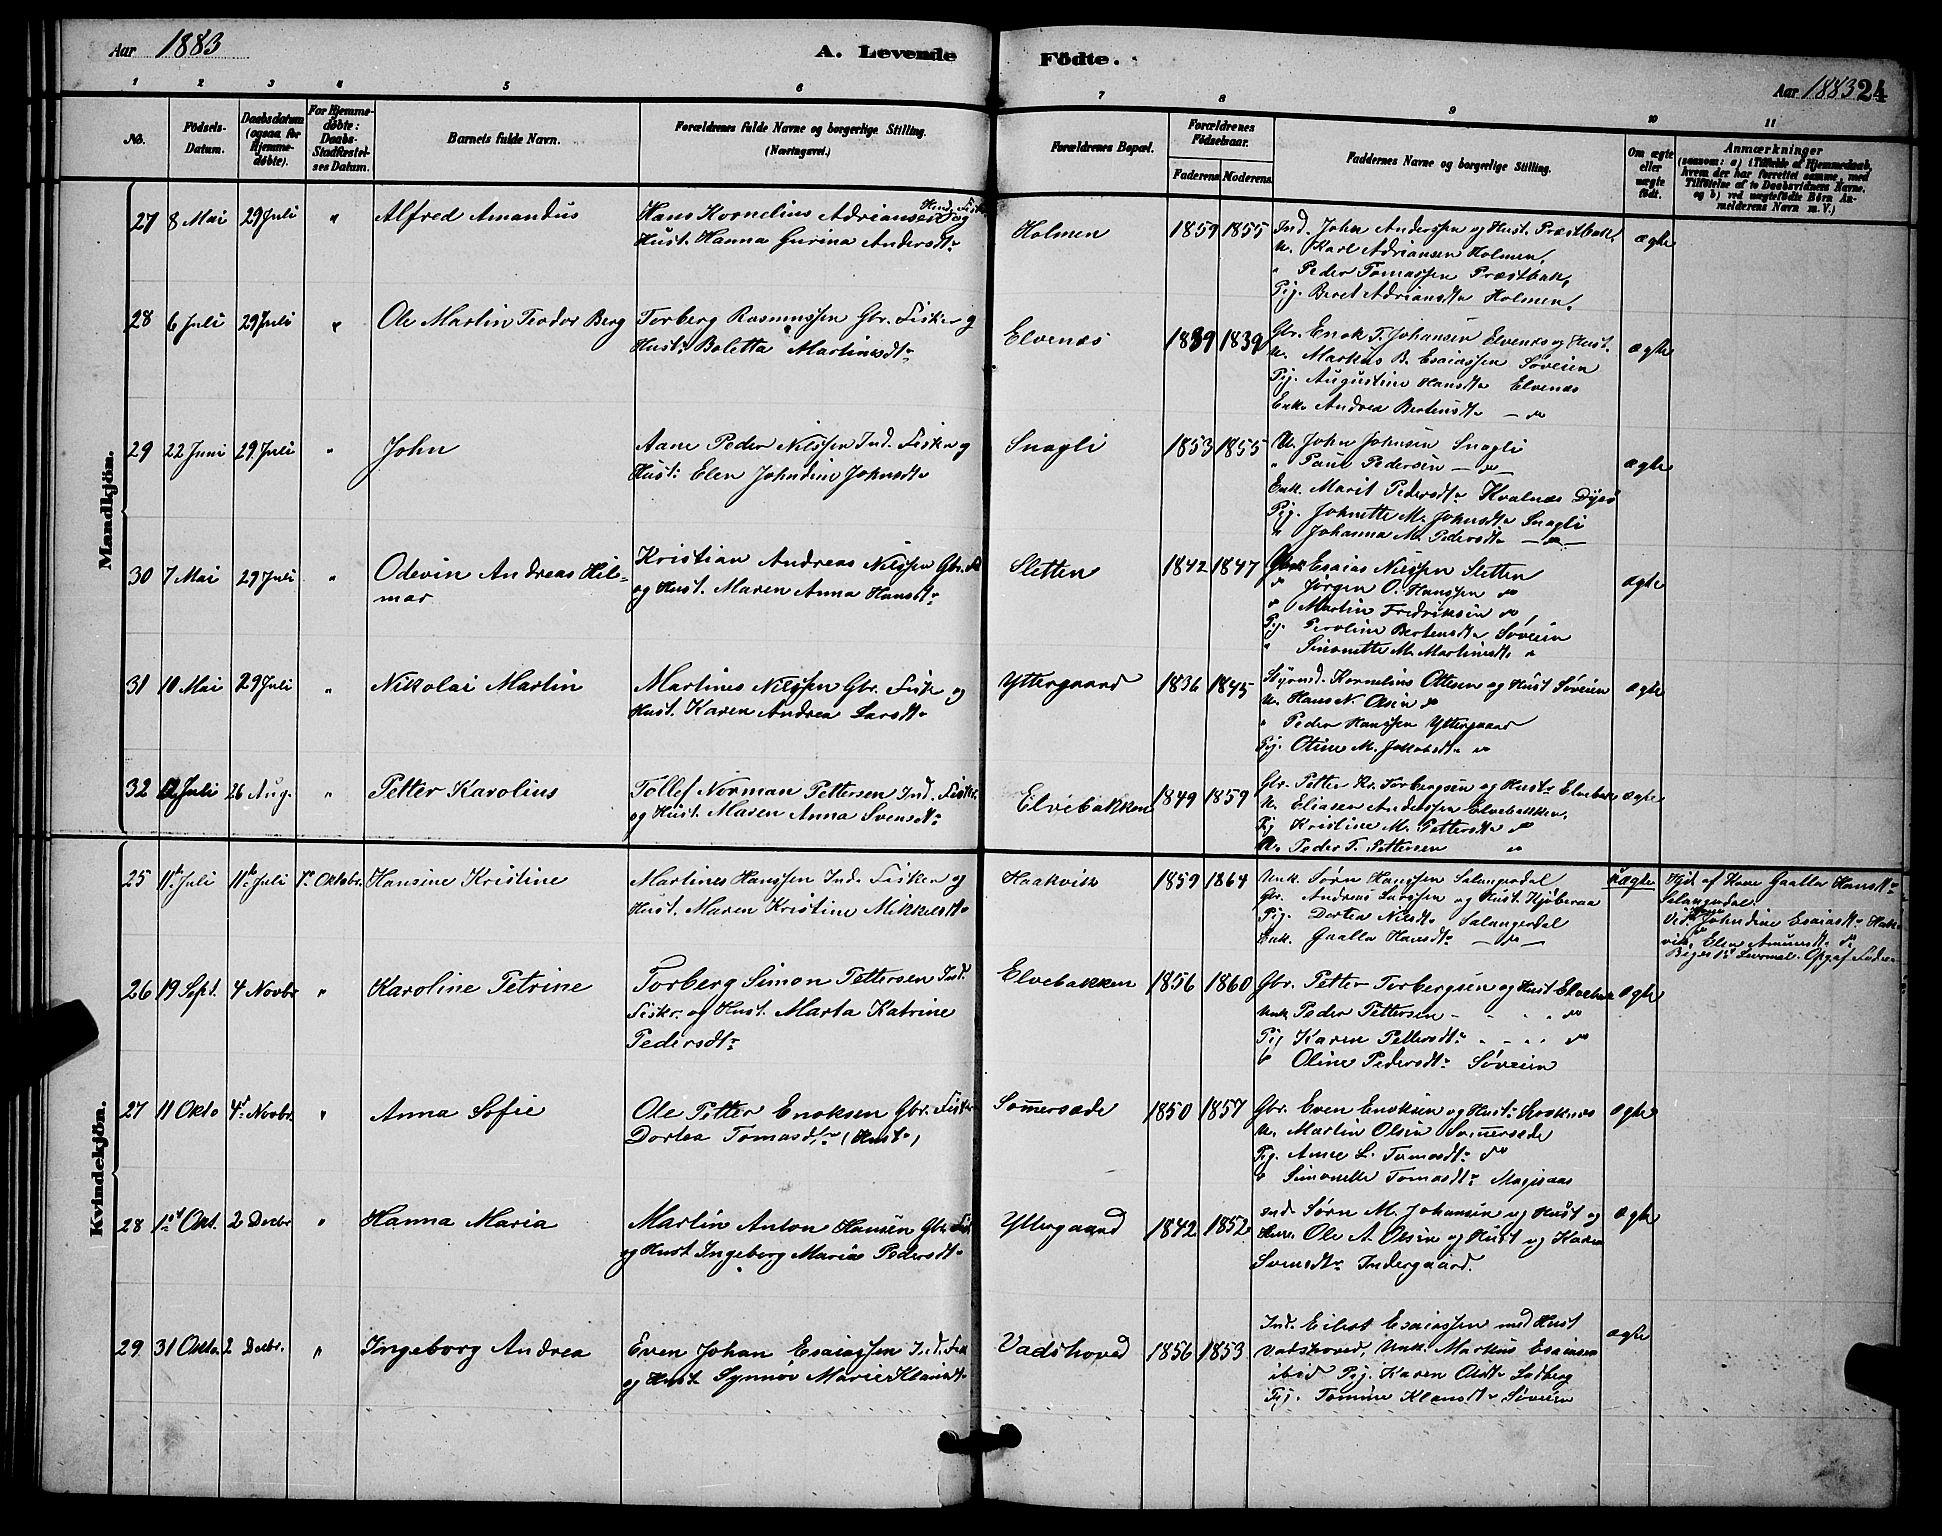 Aar 1883
A. Levende Födte.
Aar 1883 24
1 2 3 4 5 6 7 8 9 10 11
No.
Födsels-Datum.
Daabsdatum (ogsaa for Hjemmedøbte).
For Hjemmedøbte: Daabs-Stadfæstelses Datum.
Barnets fulde Navn.
Forældrenes fulde Navne og borgerlige Stilling. (Næringsvei.)
Forældrenes Bopæl.
Forældrenes Födselsaar.
Faderens. Moderens.
Faddernes Navne og borgerlige Stilling.
Om ægte eller uægte født.
Anmærkninger
(saasom: a) i Tilfælde af Hjemmedaab, hvem der har forrettet samme, med Tilføielse af to Daabsvidners Navne, og b) ved uægtefødte Börn Anmelderens Navn m. V.)
Mandkjön.
27 8 Mai 29 Juli " Alfred Amandus
Hans Kornelius Adriansen og
Hust. Hanna Gurina Andersdtr
Holmen 1859 1855
Ind. John Anderssen og Hust. Præstbak,
U. Karl Adriansen Holmen,
" Peder Tomassen Præstbak,
Pig. Beret Adriansdtr Holmen,
ægte
28 6 Juli 29 Juli " Ole Martin Teodor Berg
Torberg Rasmussen Gbr. Fisker og
Hust: Boletta Martinesdtr
Elvenes 1839 1839
Gbr. Enok T. Johansen Elvenes og Hust.
U. Markus B. Esaiassen Søveien
Pig. Augustine Hansdtr Elvenes
Enk. Andrea Bertensdtr — do
ægte
29 22 Juni 29 Juli " John
Aane Peder Nilssen Ind. Fisker og
Hust: Elen Johndine Johnsdtr
Snagli 1853 1855
U. John Johnsen Snagli
" Paul Pedersen — do —
Enk. Marit Pedersdtr Kvalnes Dyrø
Pig. Johnette M. Johnsdtr Snagli
" Johanna M. Pedersdtr — do —
ægte
30 7 Mai 29 Juli " Odevin Andreas Hil-
mar
Kristian Andreas Nilssen Gbr. Fi
og Hust. Maren Anna Hansdtr
Sletten 1842 1847
Gbr. Esaias Nilssen Sletten
do Jørgen O. Hanssen do
do Martin Fredriksen do,
Pig. Peroline Bertensdtr Søveien
" Simonette M. Martinesdtr "
ægte
31 10 Mai 29 Juli " Nikolai Martin
Martines Nilssen Gbr. Fisk. og
Hust. Karen Andrea Larsdtr
Yttergaard 1836 1845
Styrmd. Kornelius Ottesen og Hust Søveien
U. Hans N. Olsen do
" Peder Hanssen Yttergaard
Pig. Otine M. Jakobsdtr do
ægte
32 12 Juli 26 Aug. " Petter Karolius
Tollef Norman Pettersen Ind. Fiskr.
og Hust. Maren Anna Svensdtr
Elvebakken 1849 1859
Gbr. Petter Kr. Torbergsen og Hustr Elvebak
U. Eliasen Anderssen Elvebakken,
Pig Kristine M. Pettersdtr do
U. Peder T. Pettersen do
ægte
Kvindekjön.
25 11te Juli 11te Juli 7. Oktobr. Hansine Kristine
Martines Hanssen Ind. Fisker og
Hust. Maren Kristine Mikkelsdtr
Haakvik 1859 1864
Unk. Sørn Hanssen Salangsdal
Gbr. Andreas Larssen og Hust. Kjøberaa
Pig. Dortea Nilsdtr Salangsdal
Enk. Gaalla Hansdtr — do —
uægte
Hjd. af Kone Gaalla Hansdtr
Salangsdal.
Vidner Johndine Esaiasdtr Haak-
vik, Elen Amundsdtr do
26 19 Sept. 4 Novbr " Karoline Petrine
Torberg Simon Pettersen Ind.
Fiskr. og Hust. Marta Katrine
Pedersdtr
Elvebakken 1856 1860
Gbr. Petter Torbergsen og Hust Elvebak
Unk Peder Pettersen - - - do
Pig Karen Pettersdtr - - - do
" Oline Pedersdtr Søveien
ægte
27 11 Okto 4de Novbr. " Anna Sofie
Ole Petter Enoksen Gbr. Fisker
Dortea Tomasdtr (Hustr)
Sommersæde 1850 1857
Gbr. Even Enoksen og Hust.
U. Martin Olsen Sommersæde
Pig. Anne L. Tomasdtr do
" Simonette Tomasdtr
ægte
28 1ste Okt. 2 Decbr " Hanna Maria
Martin Anton Hansen Gbr. Fisk
og Hust Ingeborg Marie Pedersdtr
Yttergaard 1842 1852
Ind. Sørn M. Johansen og Hust og
Ole A. Olsen og Hust og Karen
Svensdtr Indergaard.
ægte
29 31 Oktbr. 2 Decbr. " Ingeborg Andrea
Even Johan Esaiassen Ind. Fisk
og Hust Synnøv Marie Klausdtr
Vadshoved 1856 1853
Ind. Eilert Esaiassen med Hust
Vadshoved, Unk. Markus Esaiasen
ibid Pig. Karen Olsdtr
Pig. Tomine Klausdtr Søveien
ægte